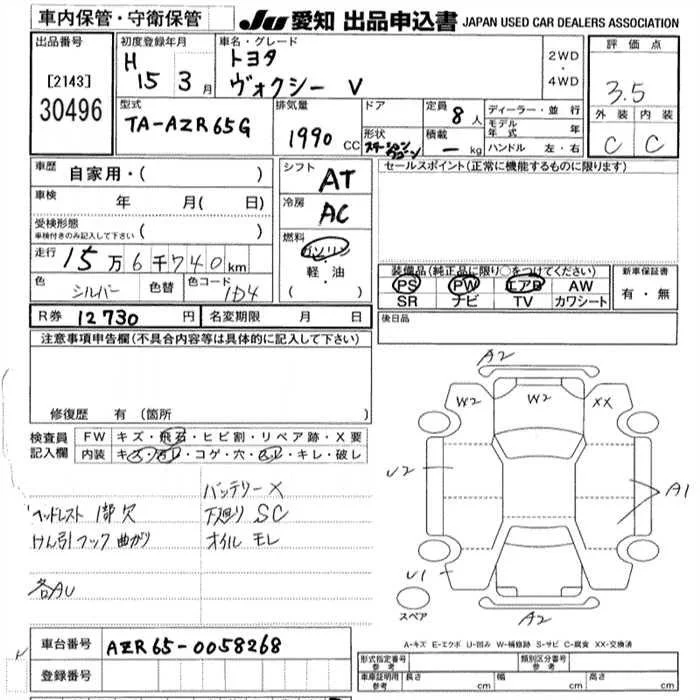 車内保管・守衛保管
JU 愛知 出品申込書 JAPAN USED CAR DEALERS ASSOCIATION
出品番号
[2143]
30496
初度登録年月
H 15 3月
車名・グレード
トヨタ
ヴォクシー V
2WD
・
4WD
評価点
3.5
外装 内装
C C
型式
TA-AZR65G
排気量
1990 CC
ドア
形状
ステーションワゴン
定員 8人
積載 ー kg
ディーラー・並行
モデル年式 年
ハンドル 左・右
車歴
自家用・( )
車検
年 月( 日)
受検形態
車検付きのみ記入して下さい ( )
走行 15万6千740km
色 シルバー 色替 色コード 1D4
シフト AT
冷房 AC
燃料
ガソリン
軽・油
( ・ )
セールスポイント(正常に機能するものに限ります)
装備品(純正品に限り○をつけてください)
PS PW エアB AW
SR ナビ TV カワシート
新車保証書
有・無
R券 12730 円 名変期限 月 日
後日品
注意事項申告欄(不具合内容等は具体的に記入して下さい)
修復歴 有(箇所
検査員記入欄
FW キズ・飛石・ヒビ割・リペア跡・X要
内装 キズ・ヨゴレ・コゲ・穴・スレ・キレ・破レ
バッテリーX
ヘッドレスト 1部欠 下廻り SC
けん引フック曲がり オイルモレ
各AU
A2
W2 W2 XX
U2
A1
U1
スペア
A2
A-キズ E-エクボ U-凹み W-補修跡 S-サビ C-腐食 XX-交換済
車台番号 AZR65-0058268
登録番号
形式指定番号 参考
類別区分番号 参考
車庫証明用 参考 長さ cm 幅 cm 高さ cm